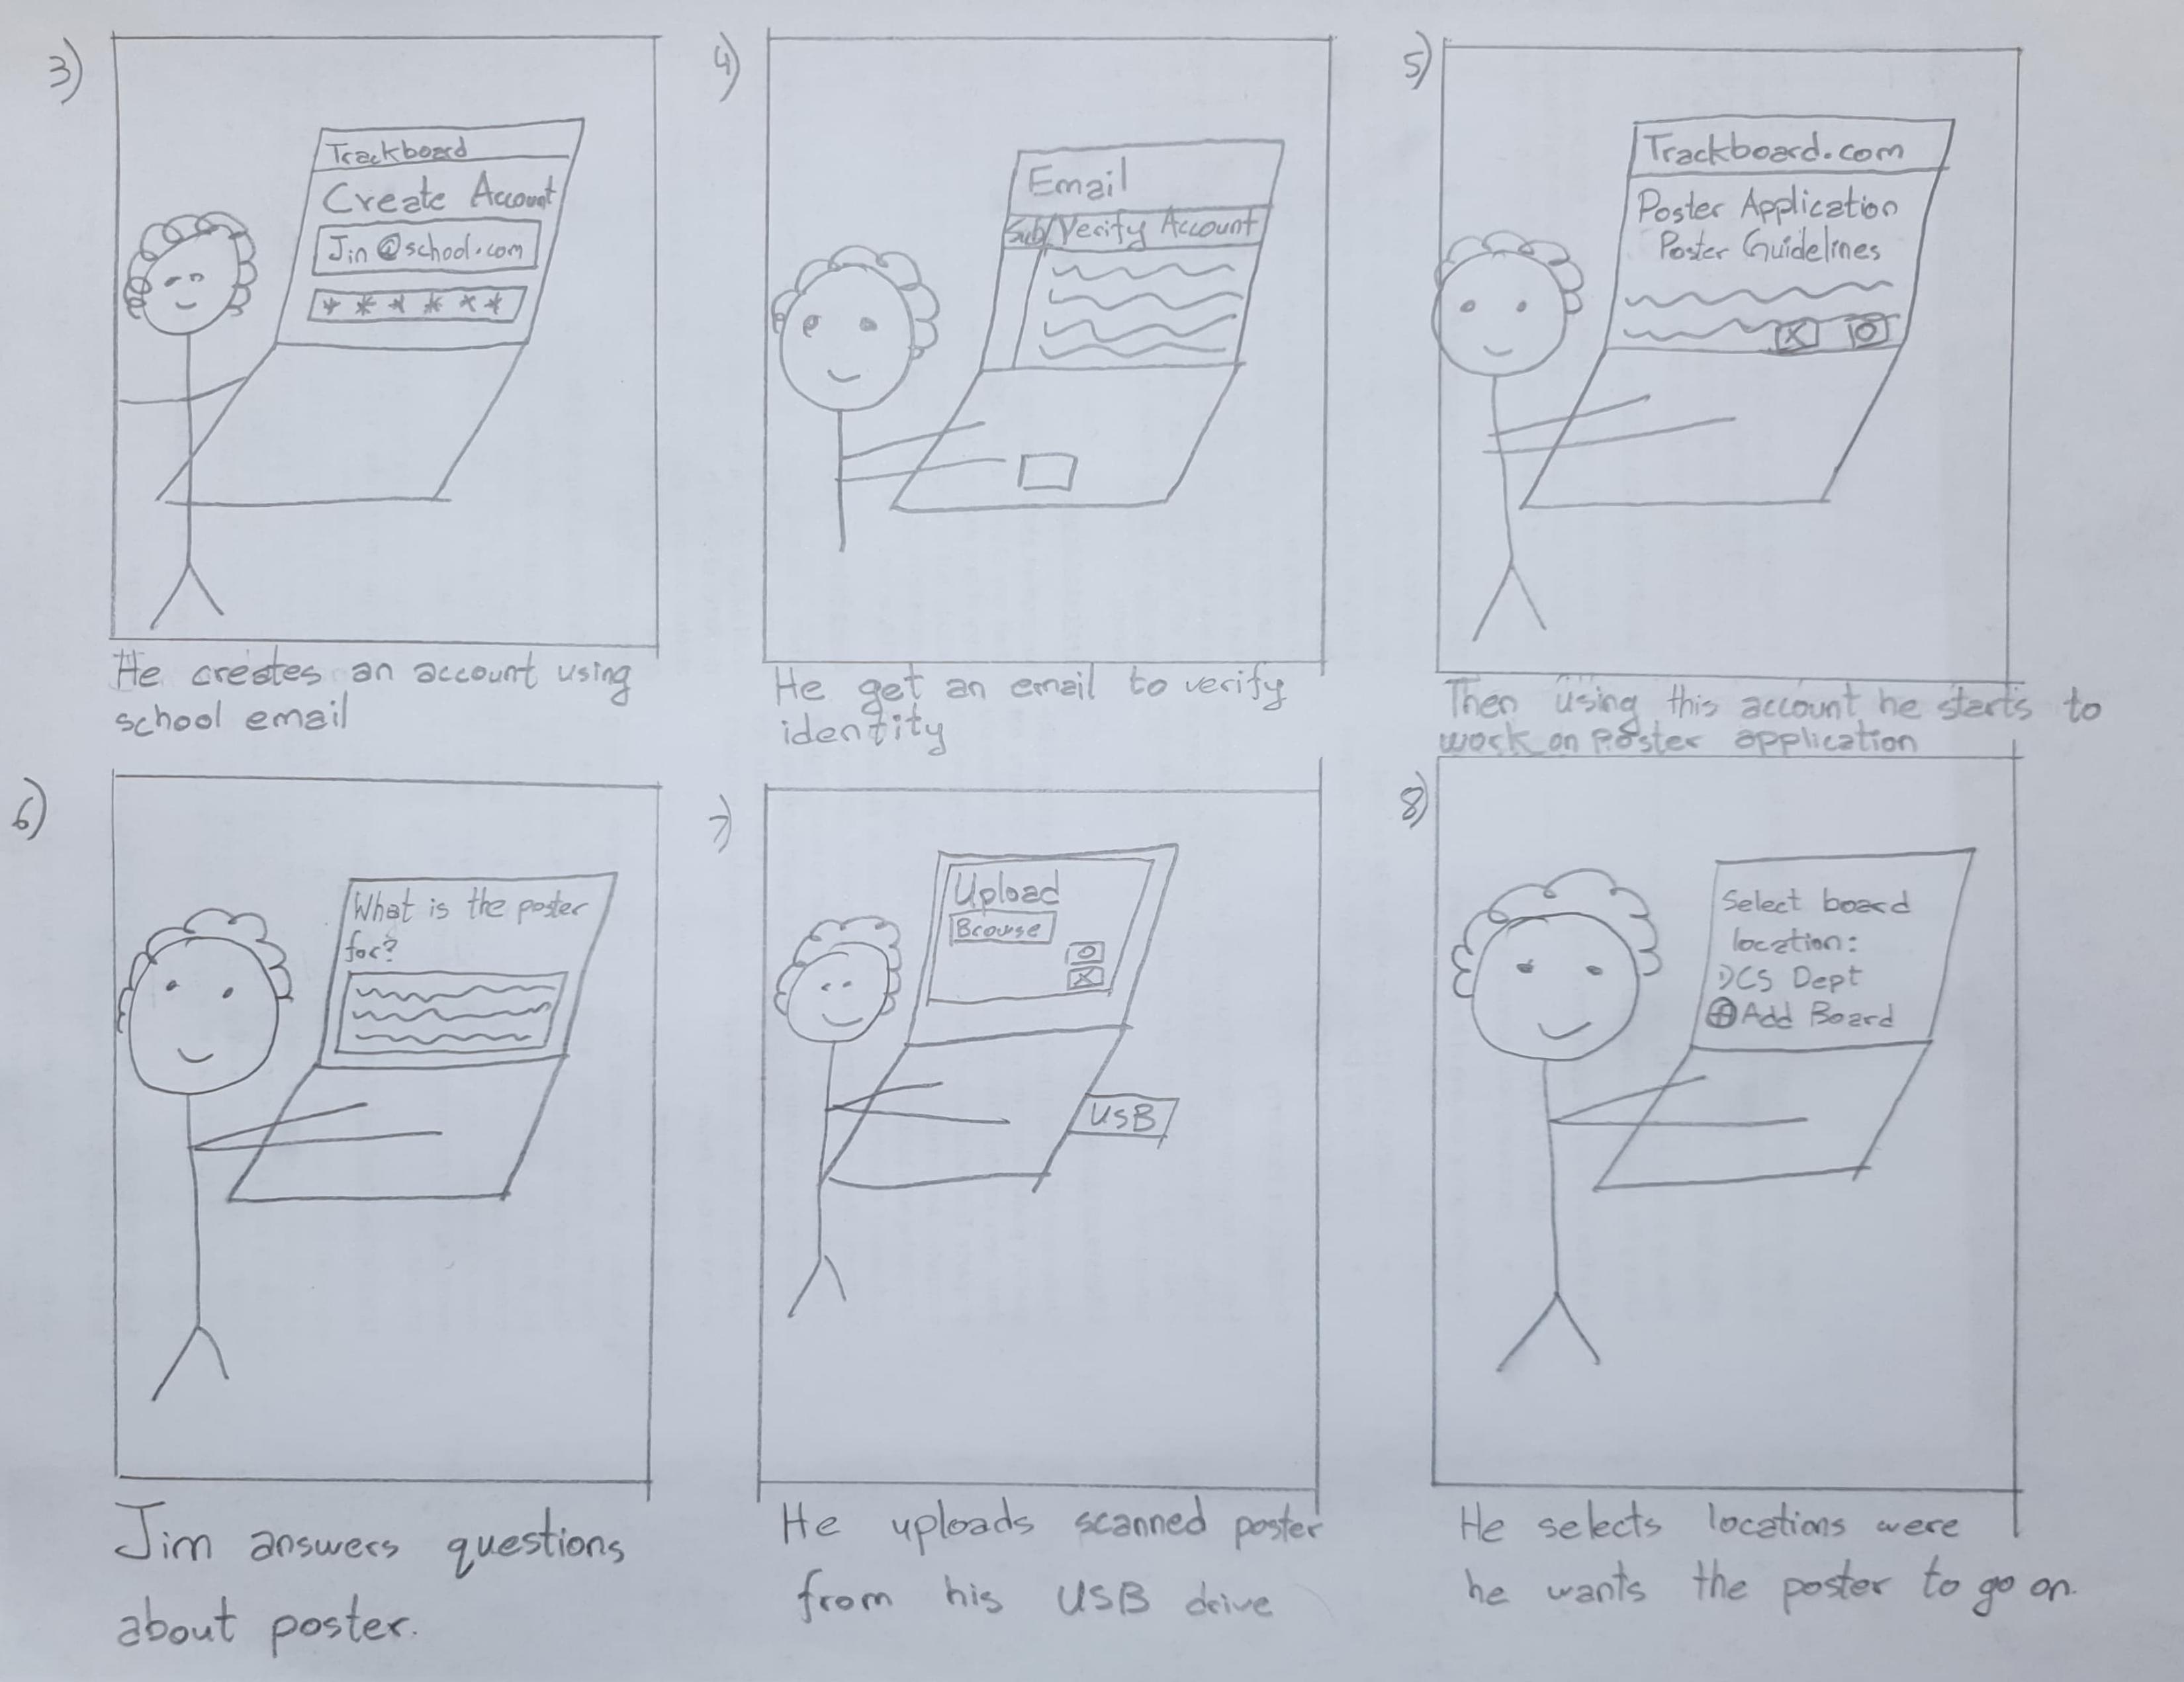 3)
Trackboard
Create Account
Jin@school.com
******
He creates an account using
school email
4)
Email
Sub/Verify Account
He get an email to verify
identity
5)
Trackboard.com
Poster Application
Poster Guidelines
X O
Then using this account he starts to
work on Poster application
6)
What is the poster
for?
Jim answers questions
about poster.
7)
Upload
Browse
O
X
USB
He uploads scanned poster
from his USB drive
8)
Select board
location:
1)CS Dept
⊕Add Board
He selects locations were
he wants the poster to go on.